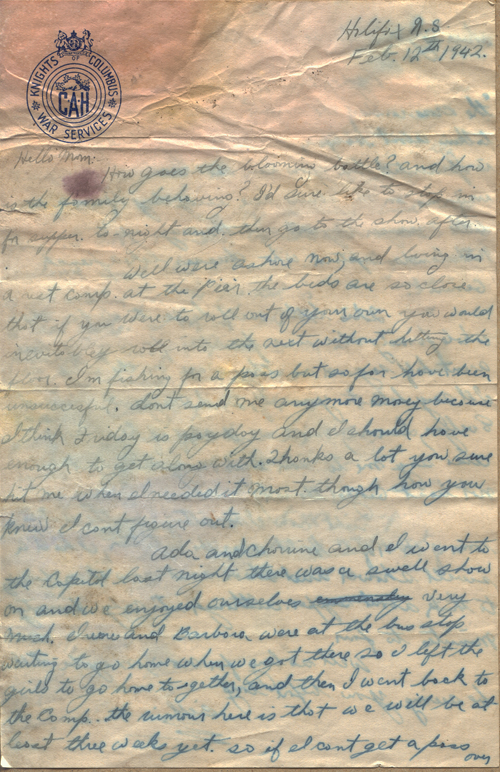 Halifax N.S.
Feb. 12th 1942.
KNIGHTS OF COLUMBUS
CAH
WAR SERVICES
Hello Mom:
How goes the bloomin battle? and how
is the family behaving? I'd sure like to step in
for supper to-night and then go to the show after.
Well were ashore now, and living in
a rest camp. at the Pier. the beds are so close
that if you were to roll out of your own you would
inevitabley roll into the next without hitting the
floor. I'm fishing for a pass but so far have been
unsuccessful. dont send me anymore money because
I think Friday is payday and I should have
enough to get along with. Thanks a lot you sure
hit me when I needed it most. though how you
knew I cant figure out.
Ada and and I went to
the Capitol last night there was a swell show
on and we enjoyed ourselves very
much. and Barbara were at the bus stop
waiting to go home when we got there so I left the
girls to go home to-gether, and then I went back to
the Camp. the rumour here is that we will be at
least three weeks yet. so if I cant get a pass
over